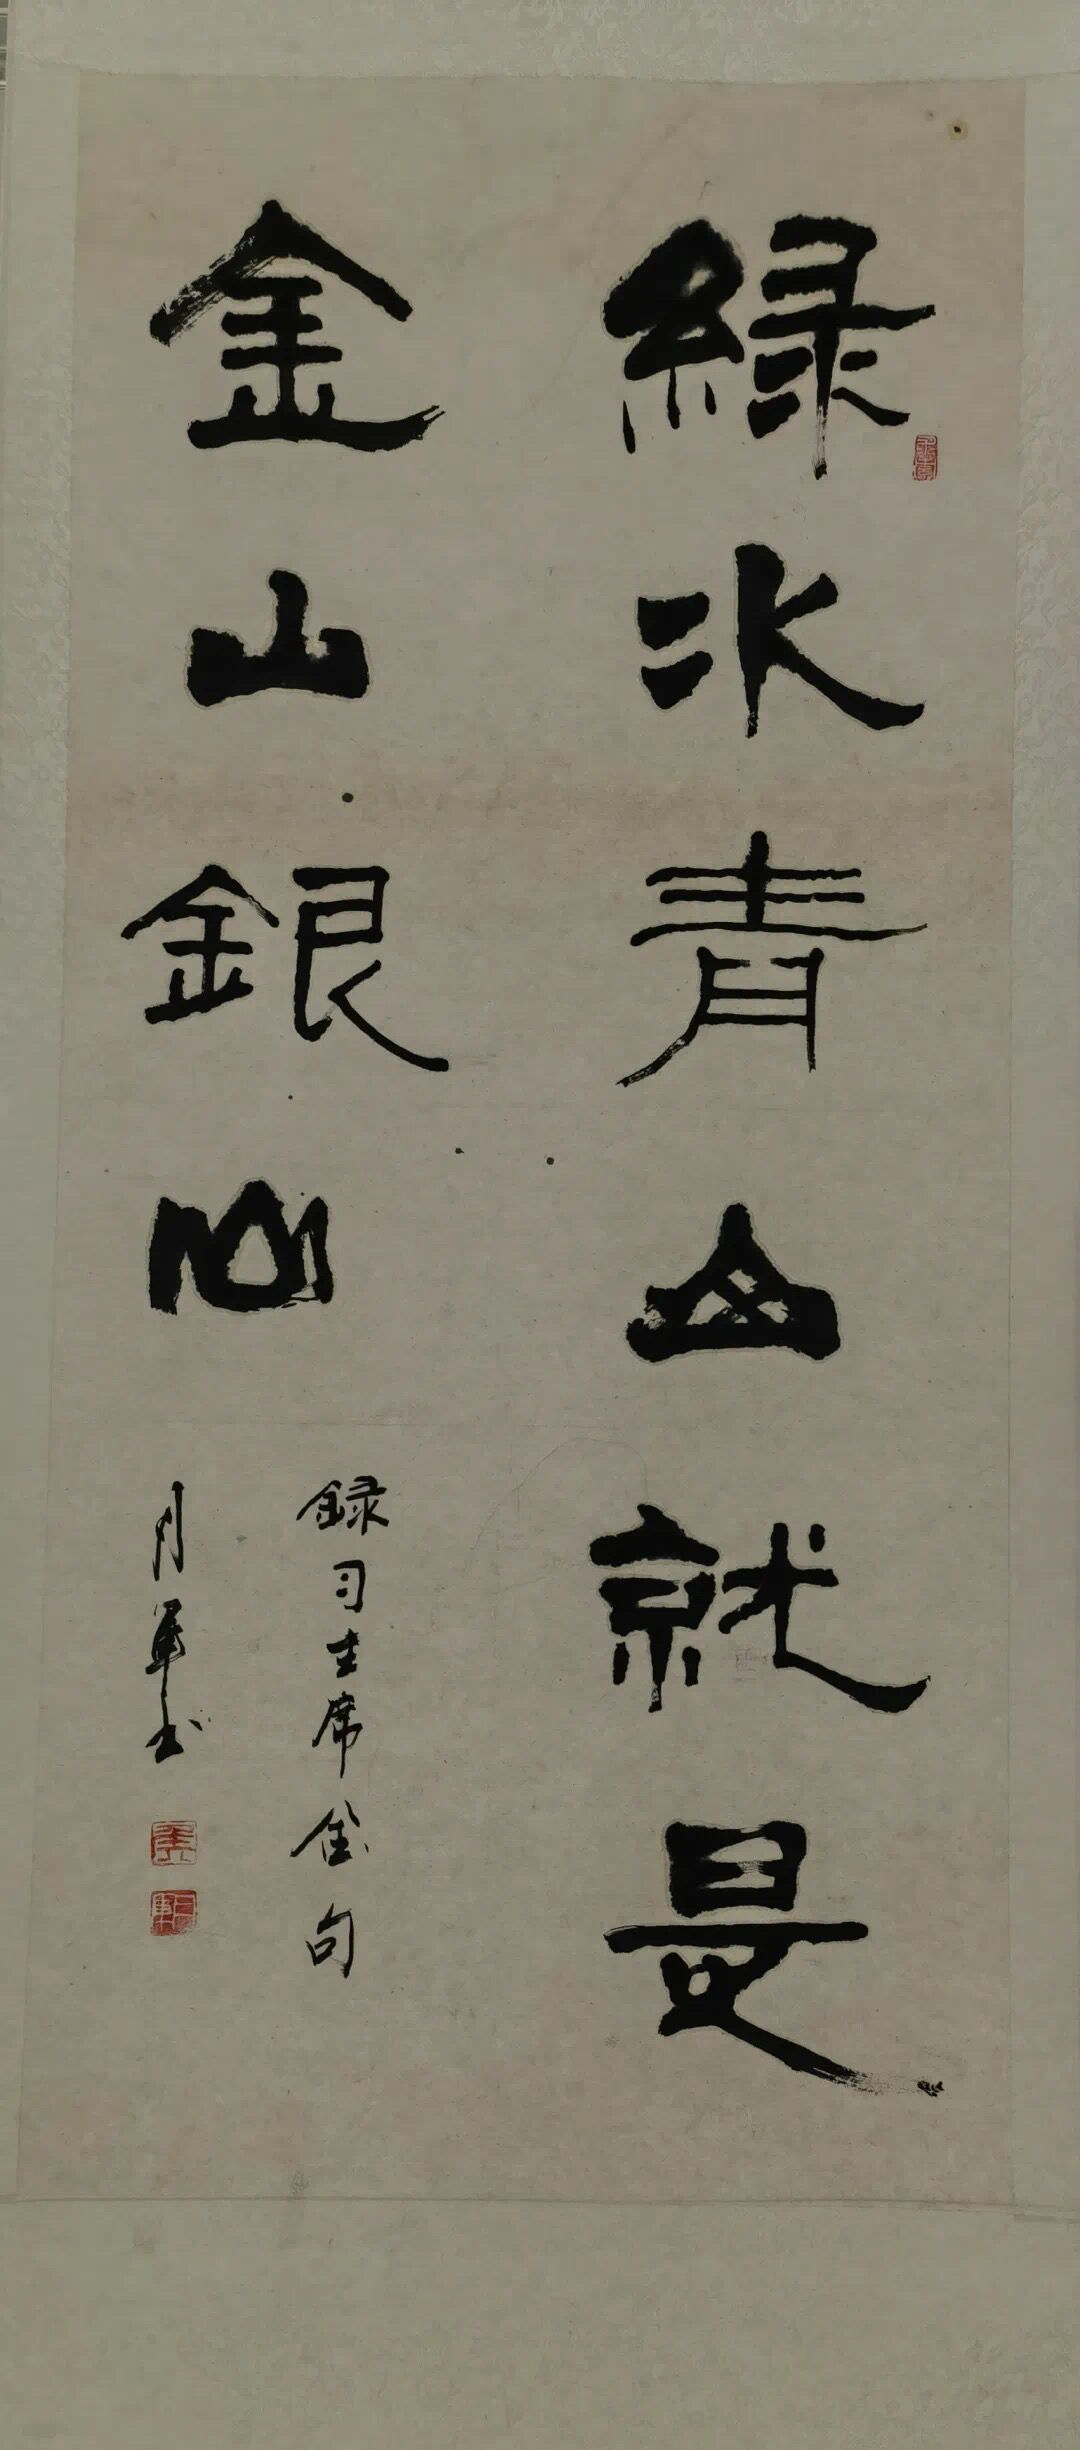 綠水青山就是
金山銀山
録习主席金句
月軍书